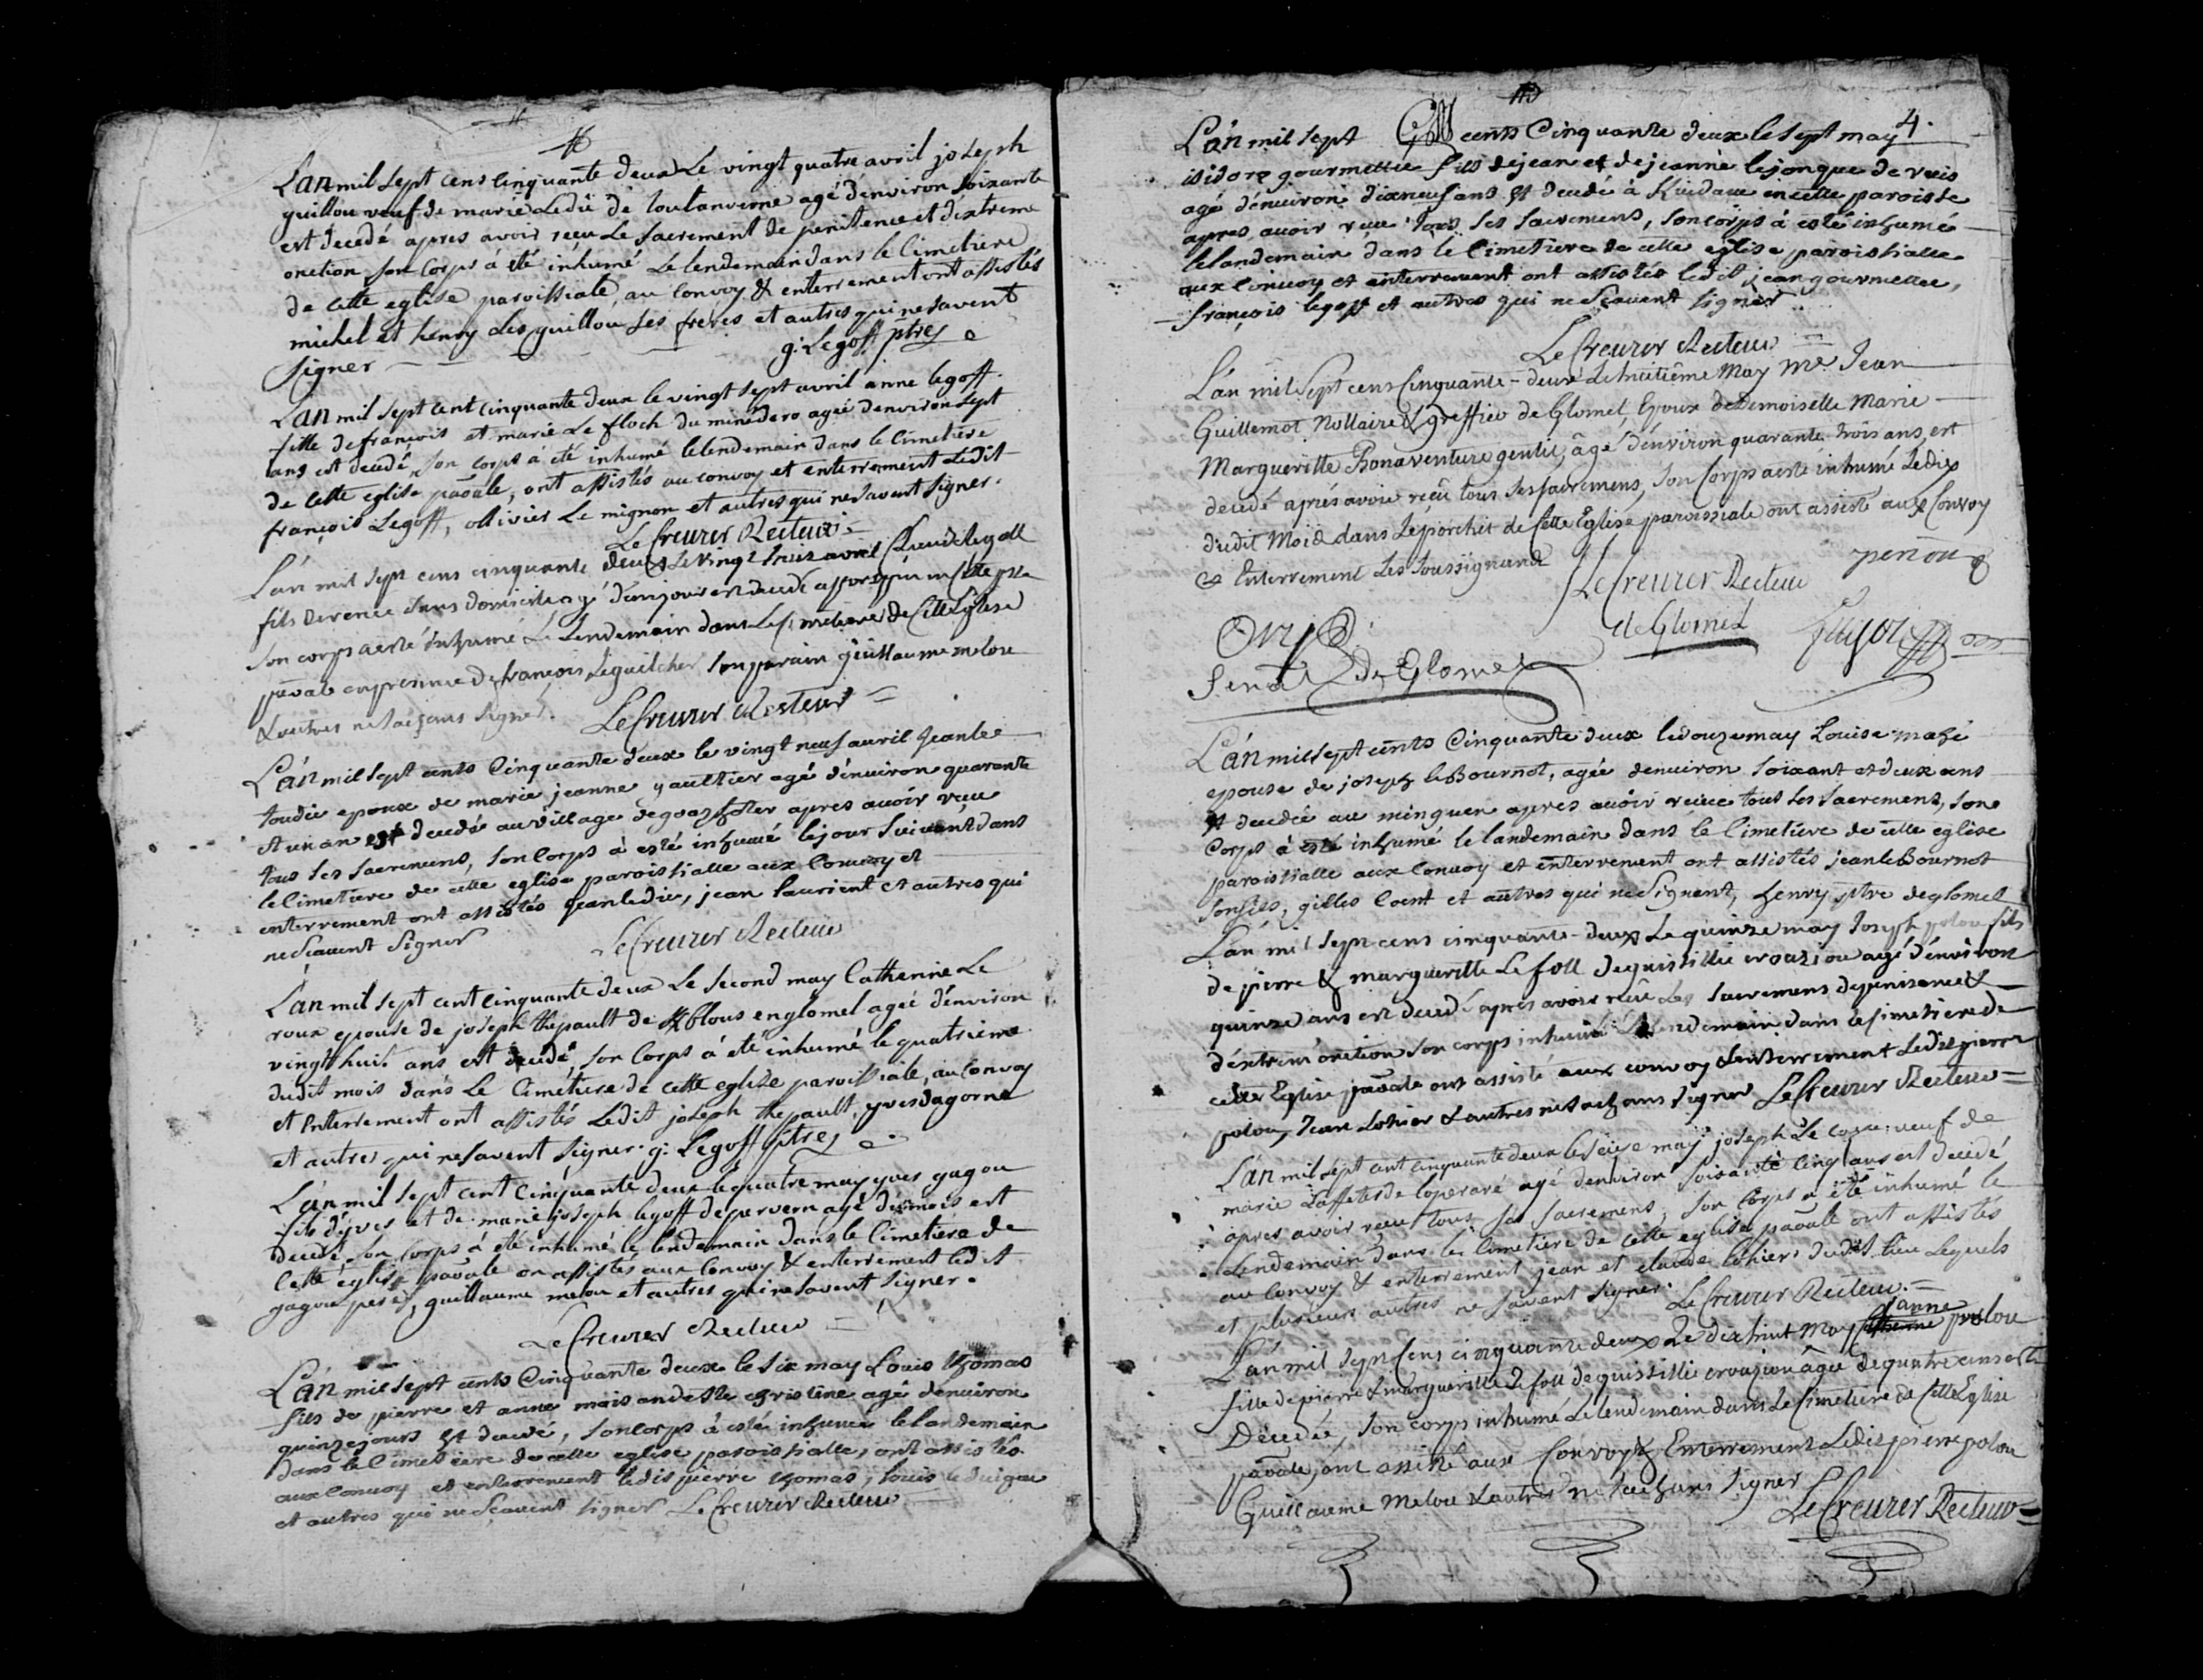 L'an mil sept cens cinquante deux Le vingt quatre avril joseph
guillou veuf de marie Ledu de toulanverne agé d'environ soixante
est decedé apres avoir reçu Le sacrement de penitence et d'extreme
onction son Corps à été inhumé Le lendemain dans le Cimetiere
de cette eglise paroissiale, au Convoy & enterrement ont assistés
michel et henry Les guillou ses freres et autres qui ne savent
signer
g: Legoff ptre
L'an mil sept cent cinquante deux le vingt sept avril anne legoff
fille de françois et marie Le floch du minédero ageé d'environ sept
ans est decedé, son corps a été inhumé le lendemain dans le Cimetiere
de cette eglise paoale, ont assistés au convoy et enterrement Ledit
françois Legoff, ollivier Le mignon et autres qui ne savent signer.
Le Creurer Recteur
L'an mil sept cens cinquante deux Le vingt huit avril
fils de renée sans domicile agé d'un jour est decedé en cette
son corps a esté inhumé Le Lendemain dans Le Cimetiere de Cette Eglise
paoale en presence de françois Leguilcher son parain guillaume melou
& autres ne sachans signer. Le Creurer Recteur
L'an mil sept cents Cinquante deux le vingt neuf avril Jean le
toudic epoux de marie jeanne gaultier agé d'environ quarante
et un an est decedé au village de apres avoir reçeu
tous ses sacremens, son Corps à esté inhumé le jour suivant dans
le Cimetiere de cette eglise paroissialle aux Convoy et
enterrement ont assistés jean ledic, jean laurient et autres qui
ne sçavent signer
Le Creurer Recteur
L'an mil sept cent cinquante deux Le second may Catherine Le
roux epouse de joseph thepault de en glomel ageé d'environ
vingt huit ans est decedé son Corps à été inhumé le quatrieme
dudit mois dans Le Cimetiere de cette eglise paroissiale, au Convoy
et Enterrement ont assistés Ledit joseph thepault, yves dagorne
et autres qui ne savent signer. g: Legoff ptre
L'an mil sept cent Cinquante deux le quatre may yves gagou
fils d'yves et de marie joseph legoff de pervern agé de mois est
decedé, son Corps à été inhumé le lendemain dans le Cimetiere de
Cette eglise paoale on assistés aux Convoy & enterrement ledit
gagou pere, guillaume melou et autres qui ne savent signer.
Le Creurer Recteur
L'an mil sept cents Cinquante deux le six may Louis thomas
fils de pierre et anne mois an de Ste cristine agé d'environ
quinze jours est decedé, son Corps à esté inhumé le landemain
dans le Cimetiere de cette eglise paroissialle, ont assistés
aux Convoy et enterrement ledit pierre thomas, louis
et autres qui ne sçavent signer Le Creurer Recteur
4.
L'an mil sept cents Cinquante deux le sept may
isidore gourmellec fils de jean et de jeanne lejonque de
agé d'environ dixneuf ans est decedé à en cette paroisse
apres avoir reçeu tous ses sacremens, son Corps à esté inhumé
le landemain dans le Cimetiere de cette eglise paroissialle
aux Convoy et enterrement ont assistés ledit jean gourmellec,
françois legoff et autres qui ne sçavent signer
Le Creurer Recteur
L'an mil sept cens Cinquante-deux Le huitième May Me Jean
Guillemot Nottaire & greffier de Glomel, Epoux de Demoiselle Marie
Margueritte Bonaventure gentil, âgé d'environ quarante-trois ans, est
decedé après avoir reçû tous ses sacremens, son Corps a esté inhumé Le dix
dudit Mois dans Le porchet de Cette Eglise paroissiale ont assisté aux Convoy
& Enterrement Les soussignants
Le Creurer Recteur
de Glomel
L'an mil sept cents Cinquante deux le douze may Louise mahé
epouse de joseph leBournot, agée d'environ soixant et deux ans
est decedée au minguen apres avoir reçeue tous ses sacremens, son
Corps à esté inhumé le landemain dans le Cimetiere de cette eglise
paroissialle aux Convoy et enterrement ont assistés jean leBournot
son fils, gilles Coent et autres qui ne signent, henry ptre de glomel
L'an mil sept cens cinquante-deux Le quinze may Joseph polou fils
de pierre & margueritte Le foll de quistillic crouziou agé d'environ
quinze ans est decedé apres avoir reçû Les sacremens de penitence &
d'extrem'onction son corps inhumé Le Lendemain dans Le Cimetiere de
cette Eglise paoale ont assisté aux convoy & enterrement Ledit pierre
polou, Jean Lohier & autres ne sachans signer Le Creurer Recteur
L'an mil sept cent cinquante deux le seize may joseph Le veuf de
marie de agé d'environ soixante Cinq ans est decedé
apres avoir reçu tous ses sacremens, son Corps a été inhumé le
Lendemain dans le Cimetiere de cette eglise paoale ont assistés
au Convoy & enterrement jean et claude Lohier dudit lieu Lequels
et plusieurs autres ne savent signer. Le Creurer Recteur
janne
L'an mil sept Cens cinquante deux Le dix huit May polou
fille de pierre & margueritte Le foll de quistillic crouziou âgée de quatre ans est
Decedée, son corps inhumé Le lendemain dans Le Cimetiere de Cette Eglise
paoale, ont assisté aux Convoy & Enterrement Ledit pierre polou
Guillaume Melou & autres ne sachans signer
Le Creurer Recteur